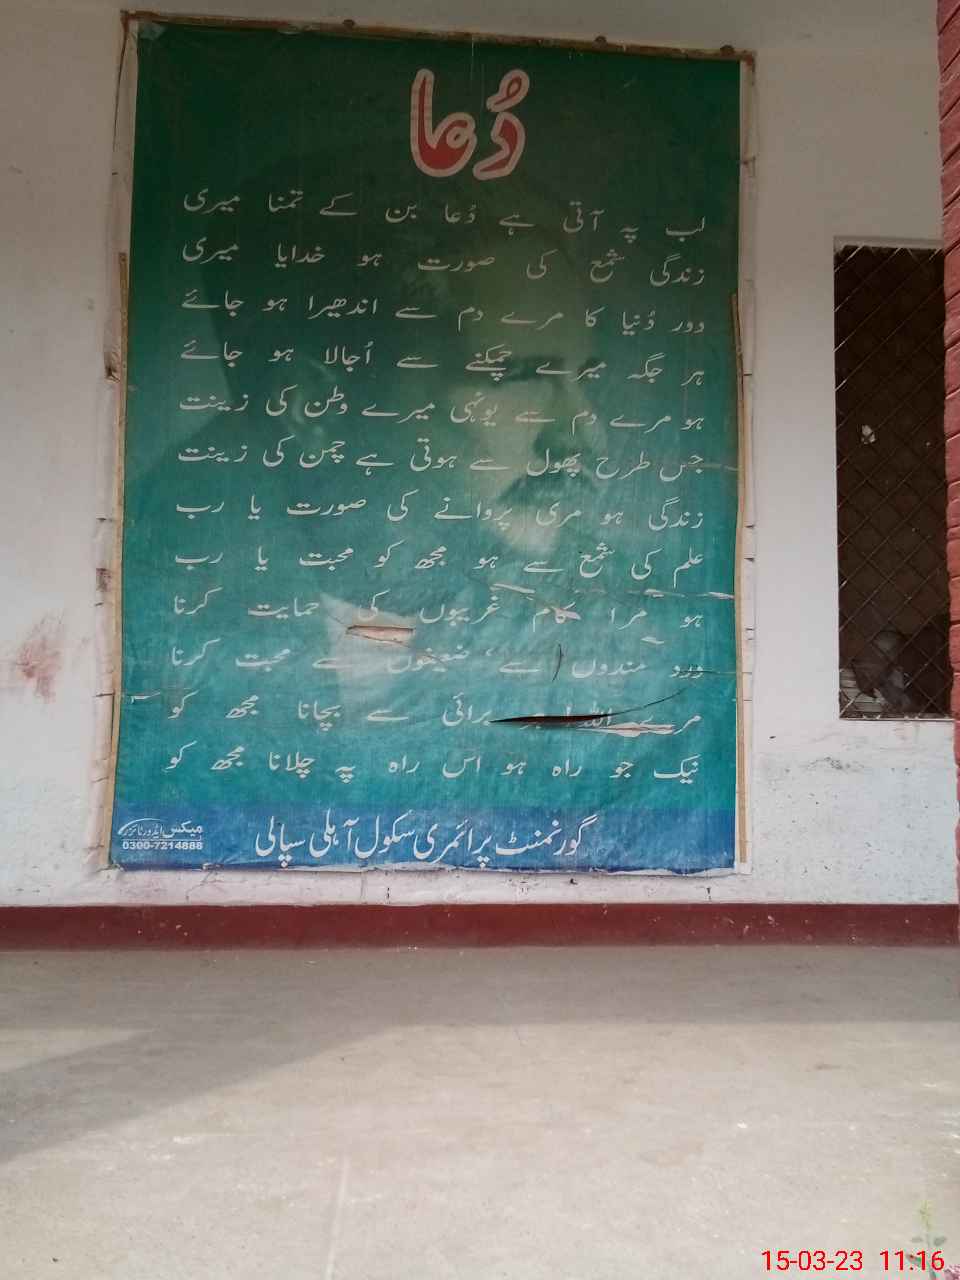 دُعا
لب پہ آتی ہے دُعا بن کے تمنا میری
زندگی شمع کی صورت ہو خدایا میری
دور دُنیا کا مرے دم سے اندھیرا ہو جائے
ہر جگہ میرے چمکنے سے اُجالا ہو جائے
ہو مرے دم سے یونہی میرے وطن کی زینت
جس طرح پھول سے ہوتی ہے چمن کی زینت
زندگی ہو مری پروانے کی صورت یا رب
علم کی شمع سے ہو مجھ کو محبت یا رب
ہو مرا کام غریبوں کی حمایت کرنا
درد مندوں سے ضعیفوں سے محبت کرنا
مرے اللہ برائی سے بچانا مجھ کو
نیک جو راہ ہو اس راہ پہ چلانا مجھ کو
گورنمنٹ پرائمری سکول آہلی سپالی
میکس ایڈورٹائزر
0300-7214888
15-03-23 11:16